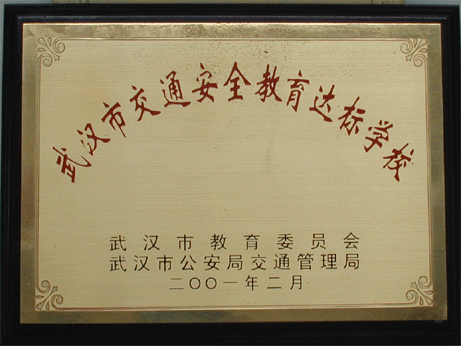 武汉市交通安全教育达标学校
武汉市教育委员会
武汉市公安局交通管理局
二〇〇一年二月